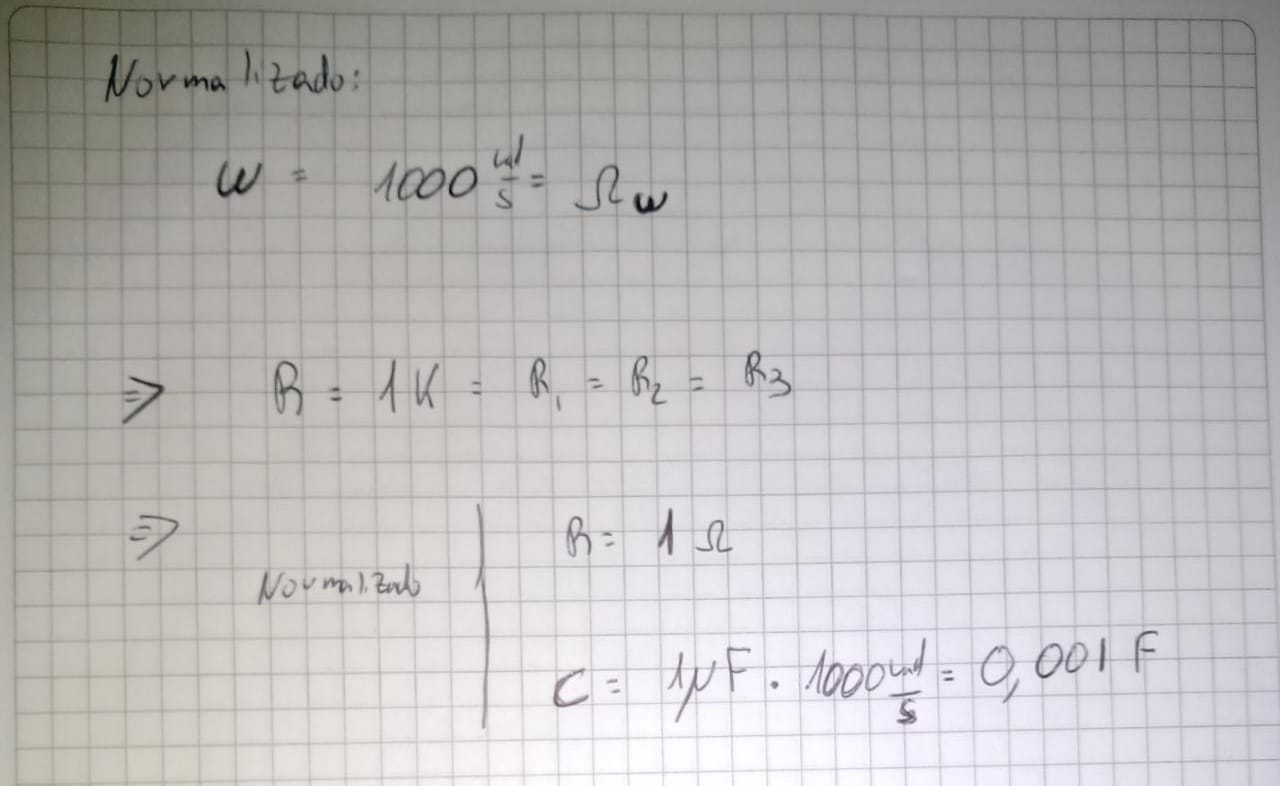 Normalizado:
ω = 1000 rad/s = Ωω
⇒ R = 1K = R1 = R2 = R3
⇒ Normalizado | R = 1 Ω
C = 1μF . 1000 rad/s = 0,001 F